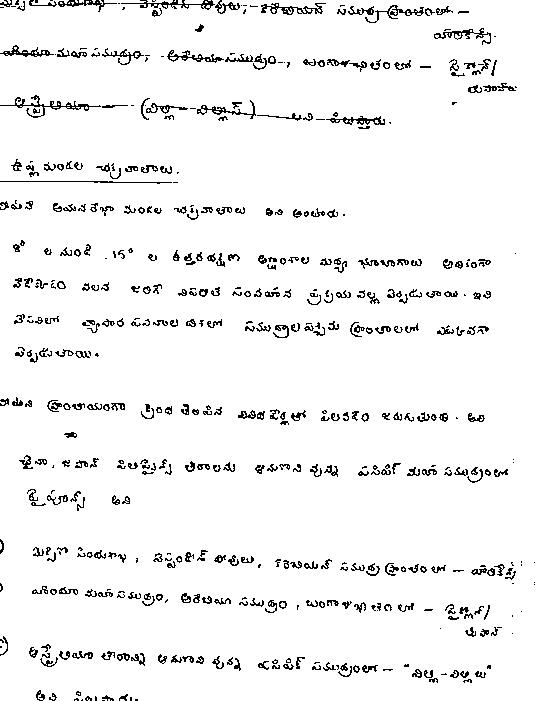 మెక్సికో సింధుశాఖ, వెస్టిండీస్ దీవులు, కరేబియన్ సముద్ర ప్రాంతంలో – హరికేన్స్
హిందూ మహాసముద్రం, అరేబియా సముద్రం, బంగాళాఖాతంలో – సైక్లోన్/
తుపాను
ఆస్ట్రేలియా – (విల్లీ - విల్లీస్) అని పిలుస్తారు.
ఉష్ణ మండల చక్రవాతాలు.
వీటినే ఆయనరేఖా మండల చక్రవాతాలు అని అంటారు.
8° ల నుండి 15° ల ఉత్తర దక్షిణ అక్షాంశాల మధ్య భూభాగాలు అధికంగా
వేడెక్కడం వలన జరిగే సంవహన ప్రక్రియ వల్ల ఏర్పడుతాయి. ఇవి
వేసవిలో వ్యాపార పవనాల దిశలో సముద్రాల పశ్చిమ ప్రాంతాలలో ఎక్కువగా
ఏర్పడుతాయి.
వీటిని ప్రాంతీయంగా క్రింద తెలిపిన వివిధ పేర్లతో పిలవడం జరుగుతుంది. అవి
చైనా, జపాన్ ఫిలిప్పైన్స్ తీరాలను ఆనుకొని వున్న పసిఫిక్ మహా సముద్రంలో
టైఫూన్స్ అని
మెక్సికో సింధుశాఖ, వెస్టిండీస్ దీవులు, కరేబియన్ సముద్ర ప్రాంతంలో – హరికేన్స్
హిందూ మహాసముద్రం, అరేబియా సముద్రం, బంగాళాఖాతంలో – సైక్లోన్/
తుపాన్
ఆస్ట్రేలియా తీరాన్ని ఆనుకొని వున్న పసిఫిక్ సముద్రంలో – "విల్లీ-విల్లీలు"
అని పిలుస్తారు.